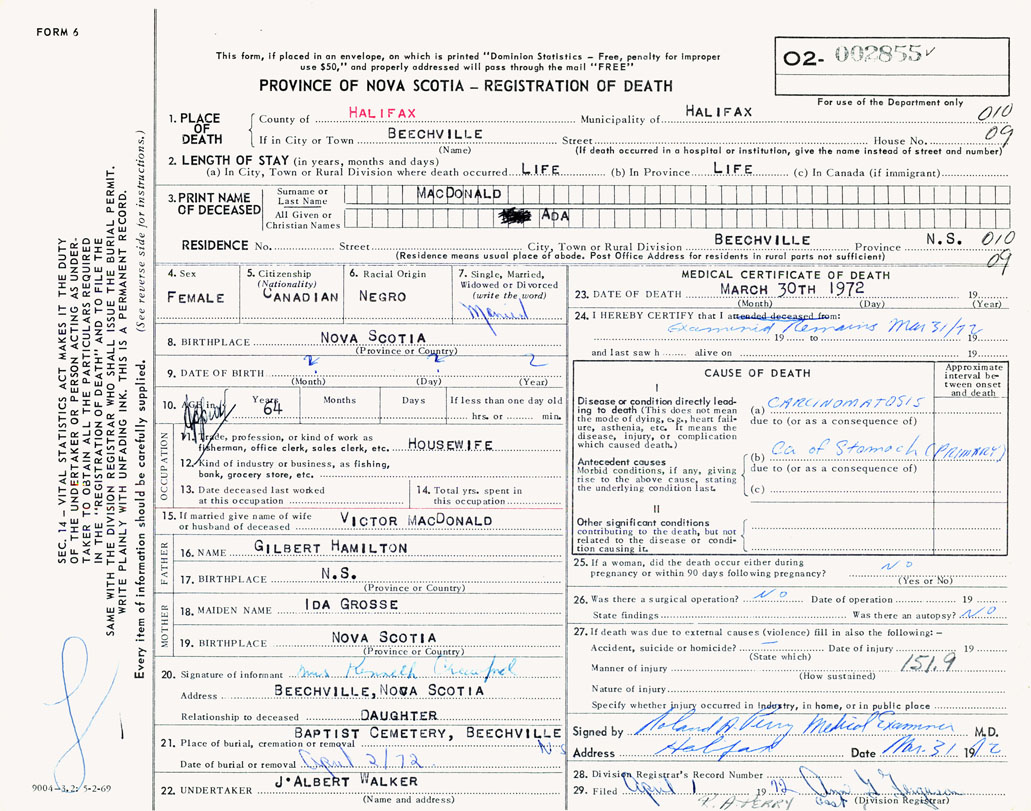 FORM 6
This form, if placed in an envelope, on which is printed "Dominion Statistics – Free, penalty for Improper
use $50," and properly addressed will pass through the mail "FREE"
PROVINCE OF NOVA SCOTIA – REGISTRATION OF DEATH
O2- 002855
For use of the Department only
1. PLACE OF DEATH
County of HALIFAX Municipality of HALIFAX 010
If in City or Town BEECHVILLE Street House No. 09
(Name) (If death occurred in a hospital or institution, give the name instead of street and number)
2. LENGTH OF STAY (in years, months and days)
(a) In City, Town or Rural Division where death occurred LIFE (b) In Province LIFE (c) In Canada (if immigrant)
3. PRINT NAME OF DECEASED
Surname or Last Name MACDONALD
All Given or Christian Names ADA
RESIDENCE No. Street City, Town or Rural Division BEECHVILLE Province N.S. 010
(Residence means usual place of abode. Post Office Address for residents in rural parts not sufficient) 09
4. Sex FEMALE
5. Citizenship (Nationality) CANADIAN
6. Racial Origin NEGRO
7. Single, Married, Widowed or Divorced (write the word) Married
8. BIRTHPLACE NOVA SCOTIA
(Province or Country)
9. DATE OF BIRTH ? ? ?
(Month) (Day) (Year)
10. AGE in Approx Years 64 Months Days If less than one day old
hrs. or min.
OCCUPATION
11. Trade, profession, or kind of work as
fisherman, office clerk, sales clerk, etc. HOUSEWIFE
12. Kind of industry or business, as fishing,
bank, grocery store, etc.
13. Date deceased last worked
at this occupation
14. Total yrs. spent in
this occupation
15. If married give name of wife
or husband of deceased VICTOR MACDONALD
FATHER
16. NAME GILBERT HAMILTON
17. BIRTHPLACE N.S.
(Province or Country)
MOTHER
18. MAIDEN NAME IDA GROSSE
19. BIRTHPLACE NOVA SCOTIA
(Province or Country)
20. Signature of informant Mrs Kenneth
Address BEECHVILLE, NOVA SCOTIA
Relationship to deceased DAUGHTER
21. Place of burial, cremation or removal BAPTIST CEMETERY, BEECHVILLE N.S
Date of burial or removal April 2/72
22. UNDERTAKER J. ALBERT WALKER
(Name and address)
MEDICAL CERTIFICATE OF DEATH
23. DATE OF DEATH MARCH 30TH 1972 19
(Month) (Day) (Year)
24. I HEREBY CERTIFY that I attended deceased from:
Examined Remains Mar 31/72
19 to 19
and last saw h alive on 19
CAUSE OF DEATH
Approximate interval between onset and death
I
Disease or condition directly lead-
ing to death (This does not mean
the mode of dying, e.g., heart fail-
ure, asthenia, etc. It means the
disease, injury, or complication
which caused death.)
(a) CARCINOMATOSIS
due to (or as a consequence of)
Antecedent causes
Morbid conditions, if any, giving
rise to the above cause, stating
the underlying condition last.
(b) Ca of Stomach (PRIMARY)
due to (or as a consequence of)
(c)
II
Other significant conditions
contributing to the death, but not
related to the disease or condi-
tion causing it.
25. If a woman, did the death occur either during
pregnancy or within 90 days following pregnancy? NO
(Yes or No)
26. Was there a surgical operation? NO Date of operation 19
State findings Was there an autopsy? NO
27. If death was due to external causes (violence) fill in also the following: –
Accident, suicide or homicide? – Date of injury 19
(State which)
Manner of injury 151.9
(How sustained)
Nature of injury
Specify whether injury occurred in Industry, in home, or in public place
Signed by Roland A. Perry Medical Examiner M.D.
Address Halifax Date Mar. 31 1972
28. Division Registrar's Record Number
29. Filed April 1 1972
(Division Registrar)
R. A PERRY
SEC. 14 – VITAL STATISTICS ACT MAKES IT THE DUTY
OF THE UNDERTAKER OR PERSON ACTING AS UNDER-
TAKER TO OBTAIN ALL THE PARTICULARS REQUIRED
IN THE "REGISTRATION OF DEATH" AND TO FILE THE
SAME WITH THE DIVISION REGISTRAR WHO SHALL ISSUE THE BURIAL PERMIT.
WRITE PLAINLY WITH UNFADING INK. THIS IS A PERMANENT RECORD.
Every item of information should be carefully supplied. (See reverse side for instructions.)
9004-3.2: 5-2-69